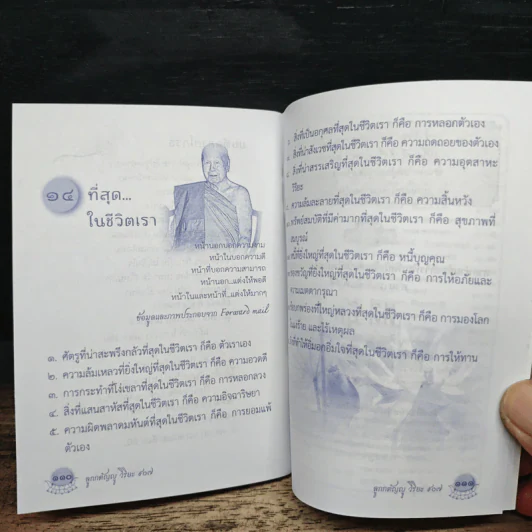 ๑๔ ที่สุด...
ในชีวิตเรา
หน้านอกบอกความงาม
หน้าในบอกความดี
หน้าที่บอกความสามารถ
หน้านอก...แต่งให้พอดี
หน้าในและหน้าที่...แต่งให้มากๆ
ข้อมูลและภาพประกอบจาก Forward mail
๑. ศัตรูที่น่าสะพรึงกลัวที่สุดในชีวิตเรา ก็คือ ตัวเราเอง
๒. ความล้มเหลวที่ยิ่งใหญ่ที่สุดในชีวิตเรา ก็คือ ความอวดดี
๓. การกระทำที่โง่เขลาที่สุดในชีวิตเรา ก็คือ การหลอกลวง
๔. สิ่งที่แสนสาหัสที่สุดในชีวิตเรา ก็คือ ความอิจฉาริษยา
๕. ความผิดพลาดมหันต์ที่สุดในชีวิตเรา ก็คือ การยอมแพ้
ตัวเอง
๑๑๐ ลูกกตัญญู วิริยะ
สิ่งที่เป็นอกุศลที่สุดในชีวิตเรา ก็คือ การหลอกตัวเอง
สิ่งที่น่าสังเวชที่สุดในชีวิตเรา ก็คือ ความถดถอยของตัวเอง
สิ่งที่น่าสรรเสริญที่สุดในชีวิตเรา ก็คือ ความอุตสาหะ
วิริยะ
ความล้มละลายที่สุดในชีวิตเรา ก็คือ ความสิ้นหวัง
ทรัพย์สมบัติที่มีค่ามากที่สุดในชีวิตเรา ก็คือ สุขภาพที่
สมบูรณ์
หนี้ที่ยิ่งใหญ่ที่สุดในชีวิตเรา ก็คือ หนี้บุญคุณ
ยิ่งใหญ่ที่สุดในชีวิตเรา ก็คือ การให้อภัยและ
ความเมตตากรุณา
ใหญ่หลวงที่สุดในชีวิตเรา ก็คือ การมองโลก
และไร้เหตุผล
ที่สุดในชีวิตเรา ก็คือ การให้ทาน
ลูกกตัญญู วิริยะ ๑๑๑